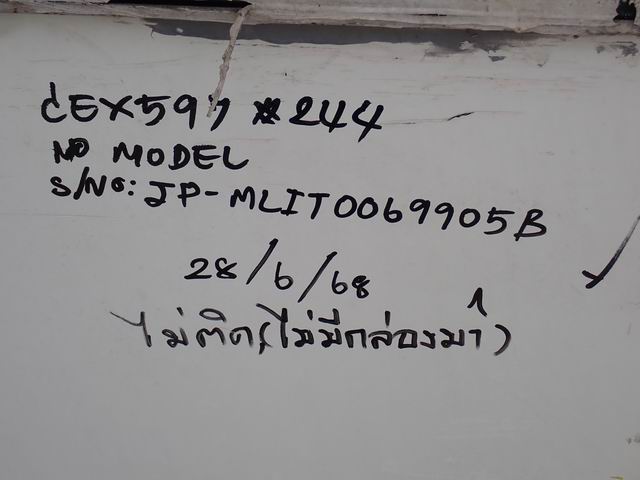 CEX597 #244
NO MODEL
S/No: JP-MLIT0069905B
28/6/68
ไม่ติด(ไม่มีกล่องมา)